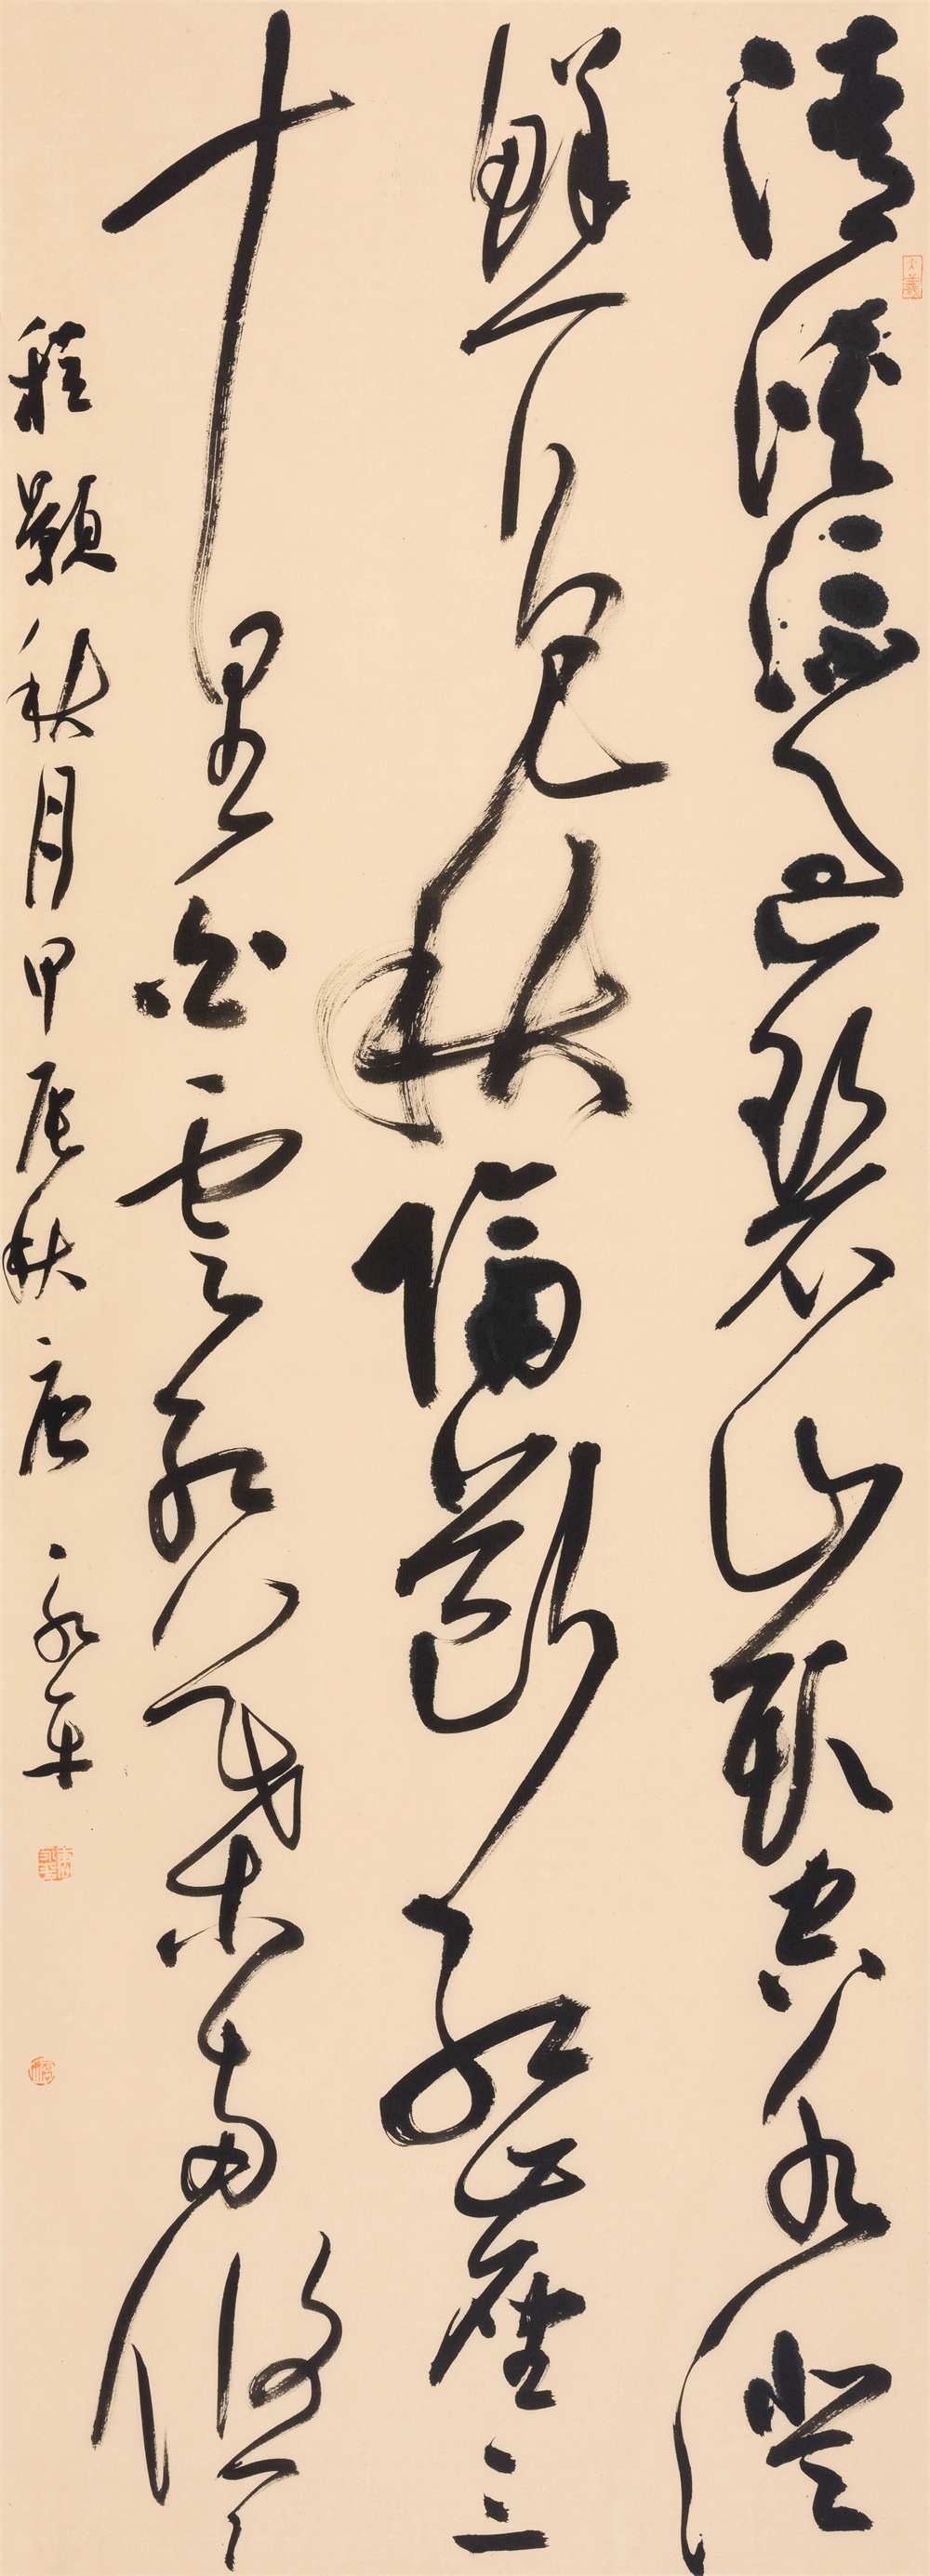 清溪流過碧山頭空水澄
鮮一色秋隔斷紅塵三
十里白雲紅葉兩悠々
程顥秋月甲辰秋唐永平